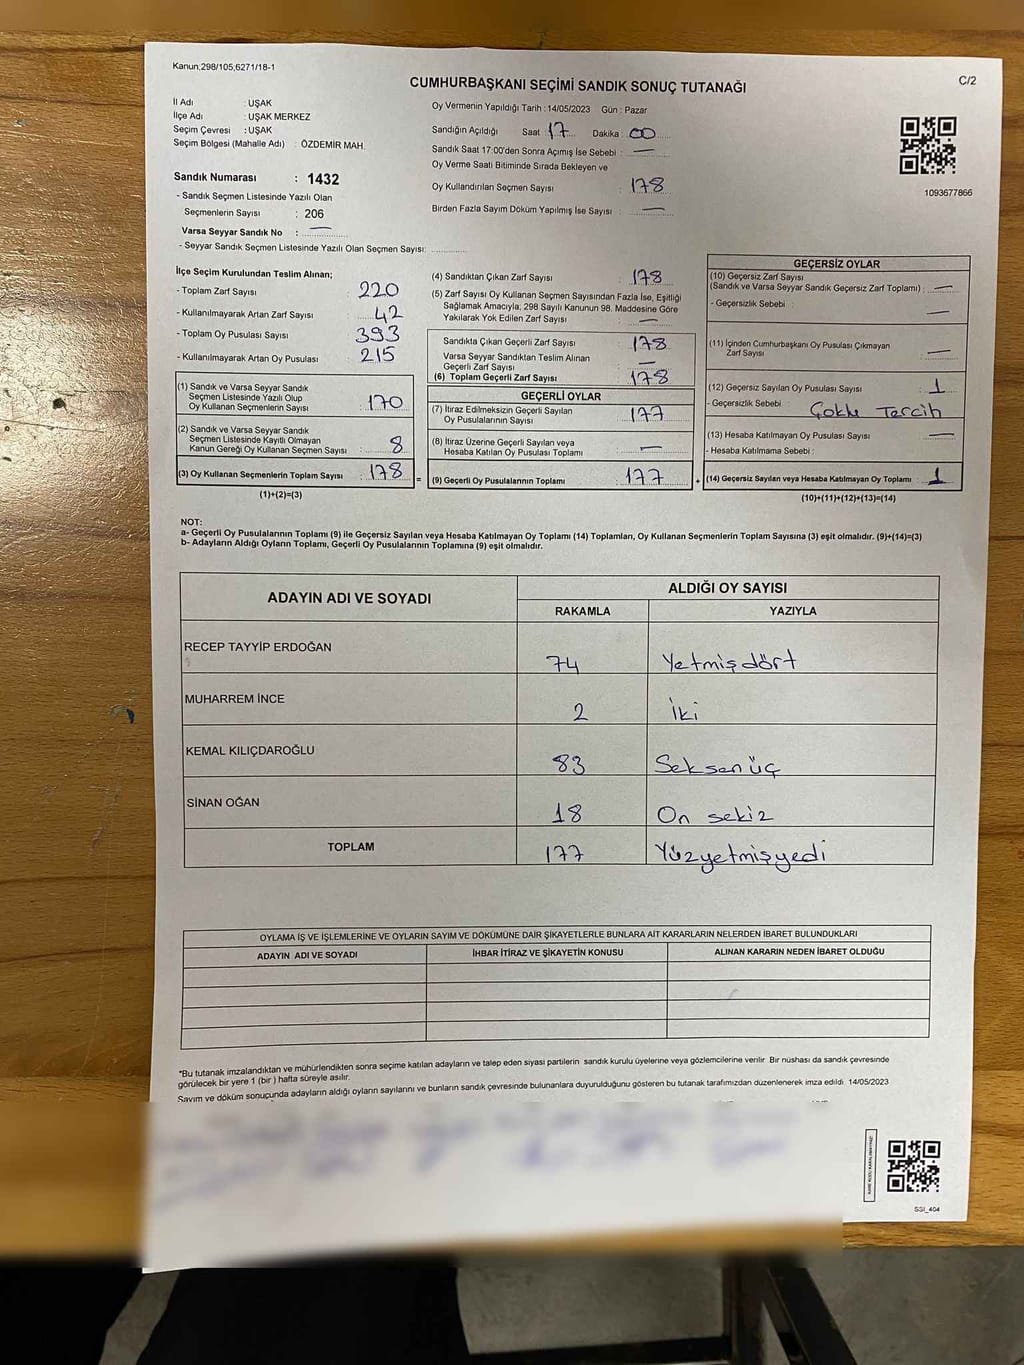 Kanun;298/105,6271/18-1
C/2
CUMHURBAŞKANI SEÇİMİ SANDIK SONUÇ TUTANAĞI
İl Adı : UŞAK
İlçe Adı : UŞAK MERKEZ
Seçim Çevresi : UŞAK
Seçim Bölgesi (Mahalle Adı) : ÖZDEMİR MAH.
Sandık Numarası : 1432
- Sandık Seçmen Listesinde Yazılı Olan
Seçmenlerin Sayısı : 206
Varsa Seyyar Sandık No : —
- Seyyar Sandık Seçmen Listesinde Yazılı Olan Seçmen Sayısı:
Oy Vermenin Yapıldığı Tarih : 14/05/2023 Gün : Pazar
Sandığın Açıldığı Saat : 17 Dakika : 00
Sandık Saat 17:00'den Sonra Açımış İse Sebebi : —
Oy Verme Saati Bitiminde Sırada Bekleyen ve
Oy Kullandırılan Seçmen Sayısı : 178
Birden Fazla Sayım Döküm Yapılmış İse Sayısı : —
1093677866
İlçe Seçim Kurulundan Teslim Alınan;
- Toplam Zarf Sayısı : 220
- Kullanılmayarak Artan Zarf Sayısı : 42
- Toplam Oy Pusulası Sayısı : 393
- Kullanılmayarak Artan Oy Pusulası : 215
(1) Sandık ve Varsa Seyyar Sandık
Seçmen Listesinde Yazılı Olup
Oy Kullanan Seçmenlerin Sayısı : 170
(2) Sandık ve Varsa Seyyar Sandık
Seçmen Listesinde Kayıtlı Olmayan
Kanun Gereği Oy Kullanan Seçmen Sayısı : 8
(3) Oy Kullanan Seçmenlerin Toplam Sayısı : 178
(1)+(2)=(3)
=
(4) Sandıktan Çıkan Zarf Sayısı : 178
(5) Zarf Sayısı Oy Kullanan Seçmen Sayısından Fazla İse, Eşitliği
Sağlamak Amacıyla, 298 Sayılı Kanunun 98. Maddesine Göre
Yakılarak Yok Edilen Zarf Sayısı : —
Sandıkta Çıkan Geçerli Zarf Sayısı : 178
Varsa Seyyar Sandıktan Teslim Alınan
Geçerli Zarf Sayısı : —
(6) Toplam Geçerli Zarf Sayısı : 178
GEÇERLİ OYLAR
(7) İtiraz Edilmeksizin Geçerli Sayılan
Oy Pusulalarının Sayısı : 177
(8) İtiraz Üzerine Geçerli Sayılan veya
Hesaba Katılan Oy Pusulası Toplamı : —
(9) Geçerli Oy Pusulalarının Toplamı : 177
+
GEÇERSİZ OYLAR
(10) Geçersiz Zarf Sayısı
(Sandık ve Varsa Seyyar Sandık Geçersiz Zarf Toplamı) : —
- Geçersizlik Sebebi : —
(11) İçinden Cumhurbaşkanı Oy Pusulası Çıkmayan
Zarf Sayısı : —
(12) Geçersiz Sayılan Oy Pusulası Sayısı : 1
- Geçersizlik Sebebi : Çoklu Tercih
(13) Hesaba Katılmayan Oy Pusulası Sayısı : —
- Hesaba Katılmama Sebebi :
(14) Geçersiz Sayılan veya Hesaba Katılmayan Oy Toplamı : 1
(10)+(11)+(12)+(13)=(14)
NOT:
a- Geçerli Oy Pusulalarının Toplamı (9) ile Geçersiz Sayılan veya Hesaba Katılmayan Oy Toplamı (14) Toplamları, Oy Kullanan Seçmenlerin Toplam Sayısına (3) eşit olmalıdır. (9)+(14)=(3)
b- Adayların Aldığı Oyların Toplamı, Geçerli Oy Pusulalarının Toplamına (9) eşit olmalıdır.
ADAYIN ADI VE SOYADI ALDIĞI OY SAYISI
RAKAMLA YAZIYLA
RECEP TAYYİP ERDOĞAN 74 Yetmişdört
MUHARREM İNCE 2 İki
KEMAL KILIÇDAROĞLU 83 Seksenüç
SİNAN OĞAN 18 On sekiz
TOPLAM 177 Yüzyetmişyedi
OYLAMA İŞ VE İŞLEMLERİNE VE OYLARIN SAYIM VE DÖKÜMÜNE DAİR ŞİKAYETLERLE BUNLARA AİT KARARLARIN NELERDEN İBARET BULUNDUKLARI
ADAYIN ADI VE SOYADI İHBAR İTİRAZ VE ŞİKAYETİN KONUSU ALINAN KARARIN NEDEN İBARET OLDUĞU
*Bu tutanak imzalandıktan ve mühürlendikten sonra seçime katılan adayların ve talep eden siyasi partilerin sandık kurulu üyelerine veya gözlemcilerine verilir. Bir nüshası da sandık çevresinde
görülecek bir yere 1 (bir) hafta süreyle asılır.
Sayım ve döküm sonucunda adayların aldığı oyların sayılarını ve bunların sandık çevresinde bulunanlara duyurulduğunu gösteren bu tutanak tarafımızdan düzenlenerek imza edildi. 14/05/2023
SSI_404